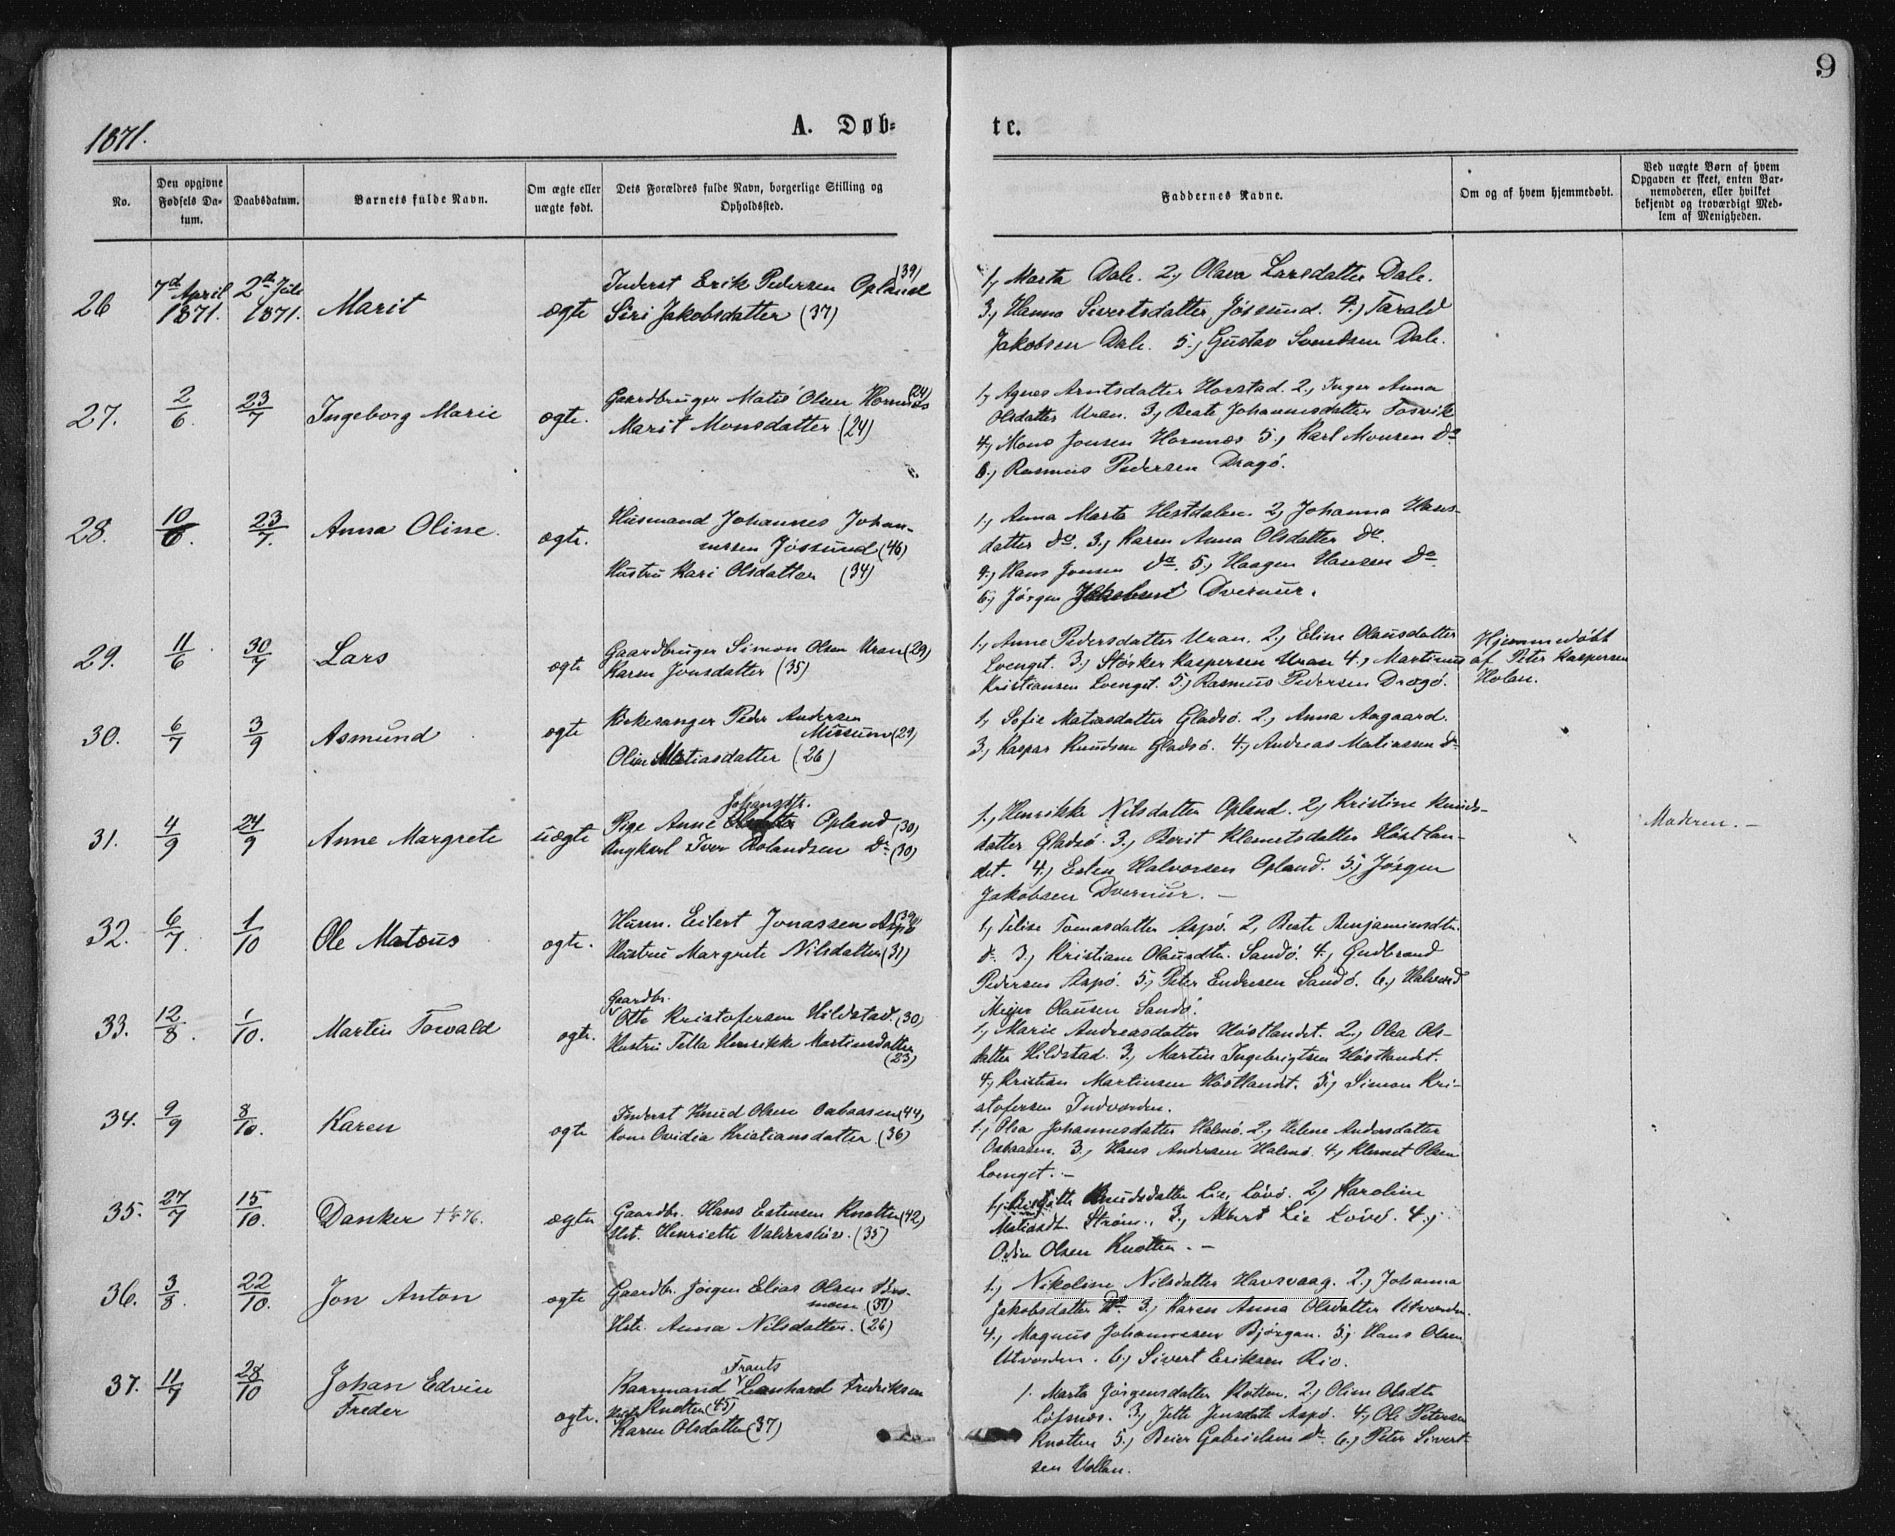 9
1871.
A. Døb-
te.
No.
Den opgivne
Fødsels Da-
tum.
Daabsdatum.
Barnets fulde Navn.
Om ægte eller
uægte født.
Dets Forældres fulde Navn, borgerlige Stilling og
Opholdssted.
Faddernes Navne.
Om og af hvem hjemmedøbt.
Ved uægte Børn af hvem
Opgaven er skeet, enten Bar-
nemoderen, eller hvilket
bekjendt og troværdigt Med-
lem af Menigheden.
26
7d April
1871.
2d Juli
1871.
Marit
ægte
Inderst Erik Pedersen Opland (39)
Siri Jakobsdatter (37)
1, Marta Dale. 2, Olava Larsdatter Dale.
3, Hanna Sivertsdatter Jøssund. 4, Tarald
Jakobsen Dale. 5, Gustav Svendsen Dale.
27.
2/6.
23/7
Ingeborg Marie
ægte.
Gaardbruger Matis Olsen Hornnæs (24)
Marit Monsdatter (24)
1, Agnes Arntsdatter Horstad. 2, Inger Anna
Olsdatter Uran. 3, Beate Johannesdatter Fosvik
4, Mons Jonsen Hornnæs 5, Karl Monsen do
6, Rasmus Pedersen Dragø.
28.
10/6.
23/7.
Anna Oline.
ægte.
Husmand Johannes Johan-
nessen Jøssund (46)
Hustru Kari Olsdatter (34)
1, Anna Marta Hestdalen 2, Johanna Hans-
datter do. 3, Karen Anna Olsdatter do.
4, Hans Jonsen do. 5, Haagen Hansen do
6, Jørgen Jakobsen Dvernur.
29.
11/6
30/7
Lars
ægte
Gaardbruger Simon Olsen Uran (29)
Karen Jonsdatter (35)
1, Anne Pedersdatter Uran. 2, Eline Olausdatter
Lvenget. 3, Størker Kaspersen Uran 4, Martinus
Kristiansen Lvenget. 5, Rasmus Pedersen Dragø.
Hjemmedøbt
af Peter Kaspersen
Holan.
30.
6/7
3/9
Asmund
ægte
Kirkesanger Peder Andersen
Missum (29)
Oline Matiasdatter (26)
1, Sofie Matiasdatter Gladsø. 2, Anna Aagaard.
3, Kaspar Knudsen Gladsø. 4, Andreas Matiassen do
31.
4/9
24/9
Anne Margrete
uægte
Johansdtr.
Pige Anne Opland (30)
Ungkarl Iver Rolandsen do (30)
1, Henrikke Nilsdatter Opland. 2, Kristine Knuds-
datter Gladsø. 3, Berit Klemetsdatter Høstlan-
det. 4, Esten Halvorsen Opland. 5, Jørgen
Jakobsen Dvernur. –
Moderen. –
32.
6/7
1/10
Ole Mateus
ægte.
Husm. Eilert Jonassen Aspø (39)
Hustru Margrete Nilsdatter (31)
1, Telise Tomasdatter Aspø. 2, Beate Benjaminsdtr.
do 3, Kristiane Olausdtr. Sandø. 4, Gudbrand
Pedersen Aspø. 5, Peter Endresen Sandø. 6, Halvard
Meyer Olausen Sandø.
33.
12/8.
1/10.
Martin Torvald
ægte.
Gaardbr.
Otto Kristofersen Hildstad. (30)
Hustru Tella Henrikke Martinsdatter
(23)
1, Marie Andreasdatter Høstlandet. 2, Olea Ols-
datter Hildstad. 3, Martin Ingebrigtsen Høstlandet.
4, Kristian Martinsen Høstlandet. 5, Simon Kri-
stofersen Indvorden.
34.
9/9
8/10.
Karen
ægte
Inderst Knud Olsen Oxbaasen (44)
Kone Ovidia Kristiansdatter (36)
1, Olea Johannesdatter Halmø. 2, Helene Andersdatter
Oxbaasen. 3, Hans Andersen Halmø. 4, Klemet Olsen
Lvenget. –
35.
27/7
15/10.
Danker † 76.
ægte
Gaardbr. Hans Estensen Knotten (42)
Hst. Henriette Valdersløv. (35)
1, Knudsdatter Lie, Løvø. 2, Karoline
Matiasdtr. Strøm. 3, Albert Lie Løvø. 4,
Odin Olsen Knotten. –
36.
3/8
22/10.
Jon Anton
ægte
Gaardbr. Jørgen Elias Olsen Bre-
moen (37)
Hst. Anna Nilsdatter. (26)
1, Nikoline Nilsdatter Havsvaag. 2, Johanna
Jakobsdatter do 3, Karen Anna Olsdatter Utvorden.
4, Magnus Johannessen Bjørgan. 5, Hans Olsen
Utvorden. 6, Sivert Eriksen Rio.
37.
11/7
28/10
Johan Edvin
Freder
ægte.
Frants
Kaarmand Leonhard Fredriksen
Knotten (45)
Karen Olsdatter (37)
1. Marta Jørgensdatter Kotten. 2, Oline Olsdtr
Løfsnæs. 3, Jette Jensdatr Aspø. 4, Ole Petersen
Knotten 5, Beier Gabrielsen do. 6, Peter Sivert-
sen Vollan.